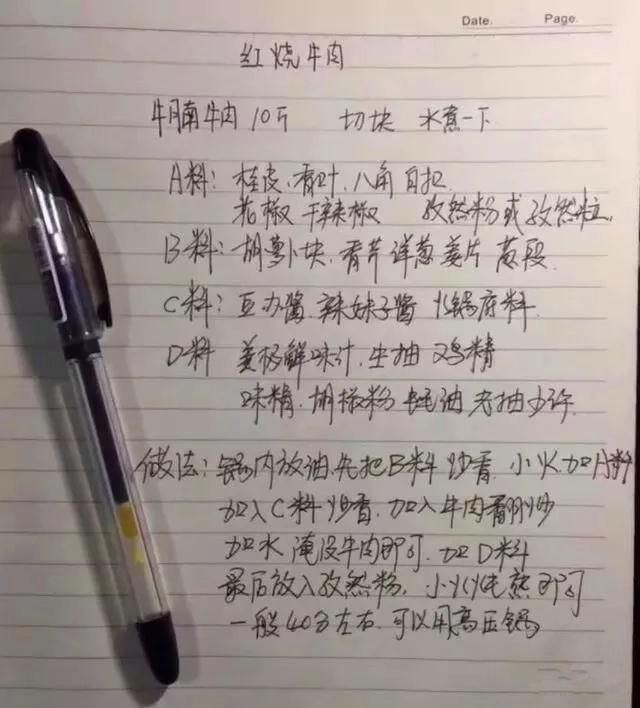 Date. Page.
红烧牛肉
牛腩牛肉 10斤 切块 水煮一下
A料: 桂皮、香叶、八角 白扣
花椒 干辣椒 孜然粉或孜然粒,
B料: 胡萝卜块、香芹 洋葱 姜片 葱段
C料: 豆办酱、辣妹子酱 火锅底料
D料 美极鲜味汁、生抽 鸡精
味精、胡椒粉 蚝油 老抽少许
做法: 锅内放油、先把B料炒香、小火加A料
加入C料炒香、加入牛肉翻炒
加水淹没牛肉即可、加D料
最后放入孜然粉, 小火炖熟即可
一般40分左右、可以用高压锅